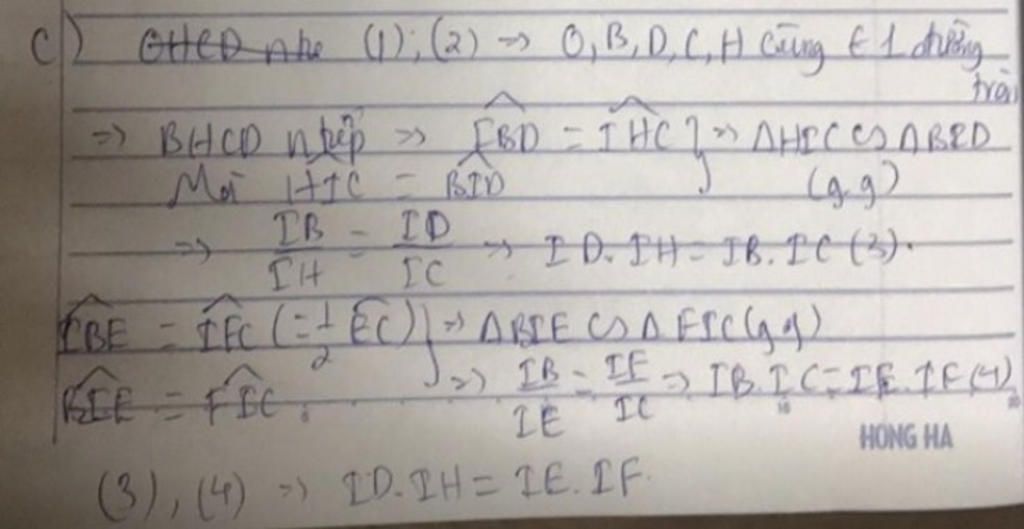 c) OHCD nhe (1), (2) => O, B, D, C, H cùng ∈ 1 đường tròn
=> BHCD ntiếp => \widehat{IBD} = \widehat{IHC} } => ΔHIC ∽ ΔBID
Mà \widehat{HIC} = \widehat{BID} (g.g)
=> \frac{IB}{IH} = \frac{ID}{IC} => ID.IH = IB.IC (3).
\widehat{IBE} = \widehat{IFC} (= \frac{1}{2} \widehat{EC}) } => ΔBIE ∽ ΔFIC (g.g)
\widehat{BIE} = \widehat{FIC} => \frac{IB}{IE} = \frac{IF}{IC} => IB.IC = IE.IF (4)
HONG HA
(3), (4) => ID.IH = IE.IF.